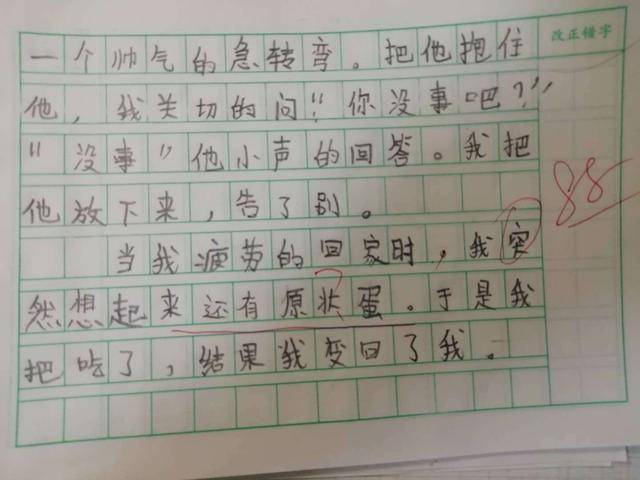 改正错字
一个帅气的急转弯。把他抱住
他，我关切的问“你没事吧？”
“没事”他小声的回答。我把
他放下来，告了别。
88
当我疲劳的回家时，我突
然想起来还有原状蛋。于是我
把吃了，结果我变回了我。